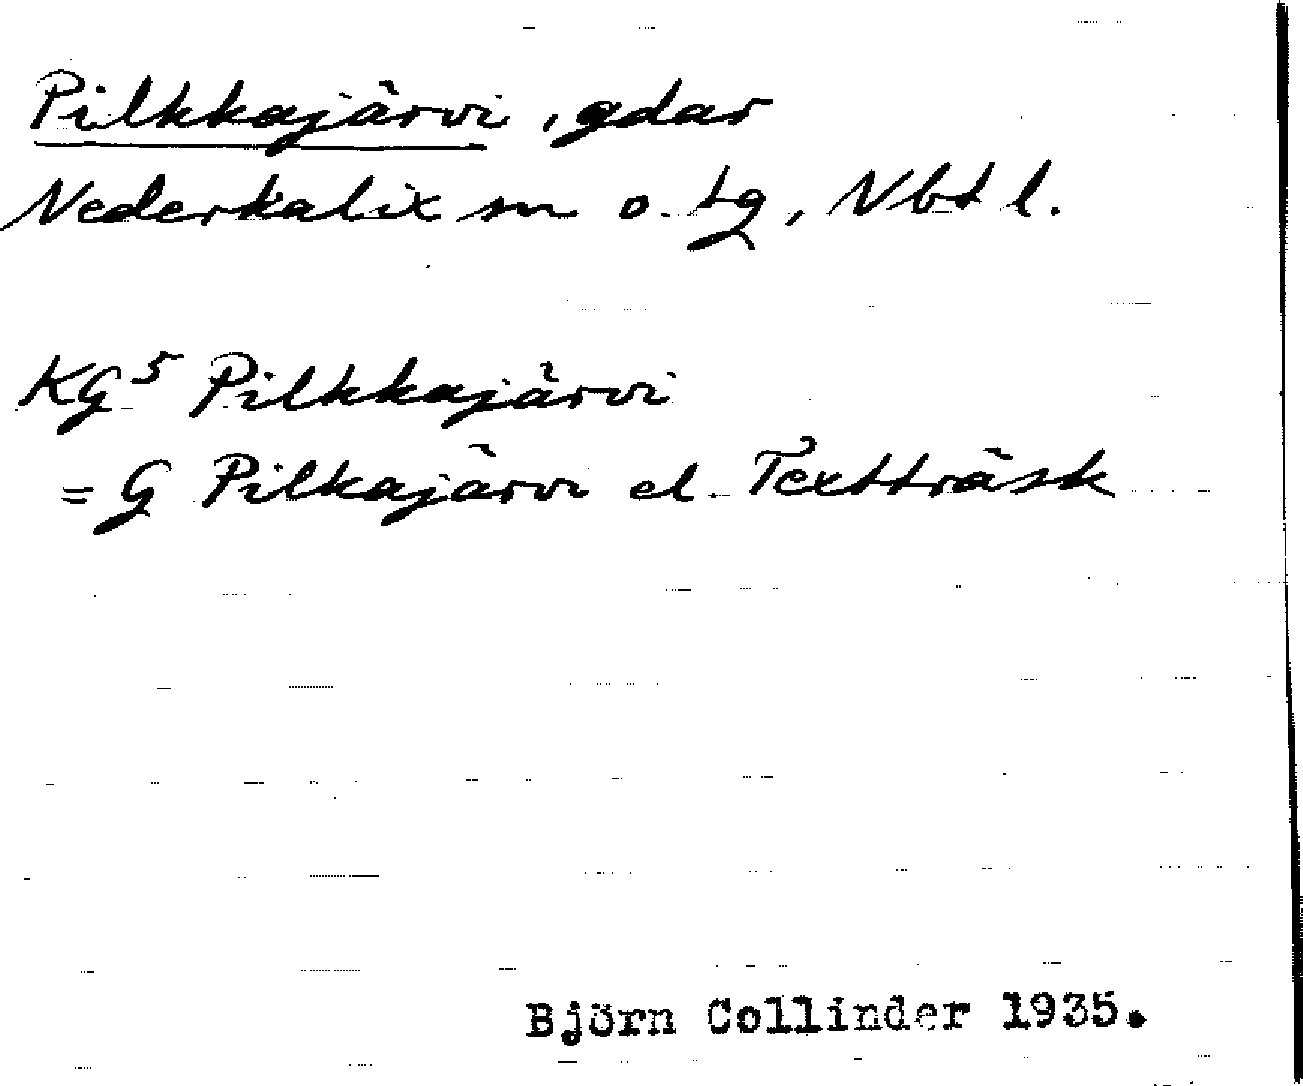 Pilkkajärvi, gdar
Nederkalix sn o. tg, Nbt l.
KG5 Pilkkajärvi
= G Pilkajärvi el. Textträsk
Björn Collinder 1935.